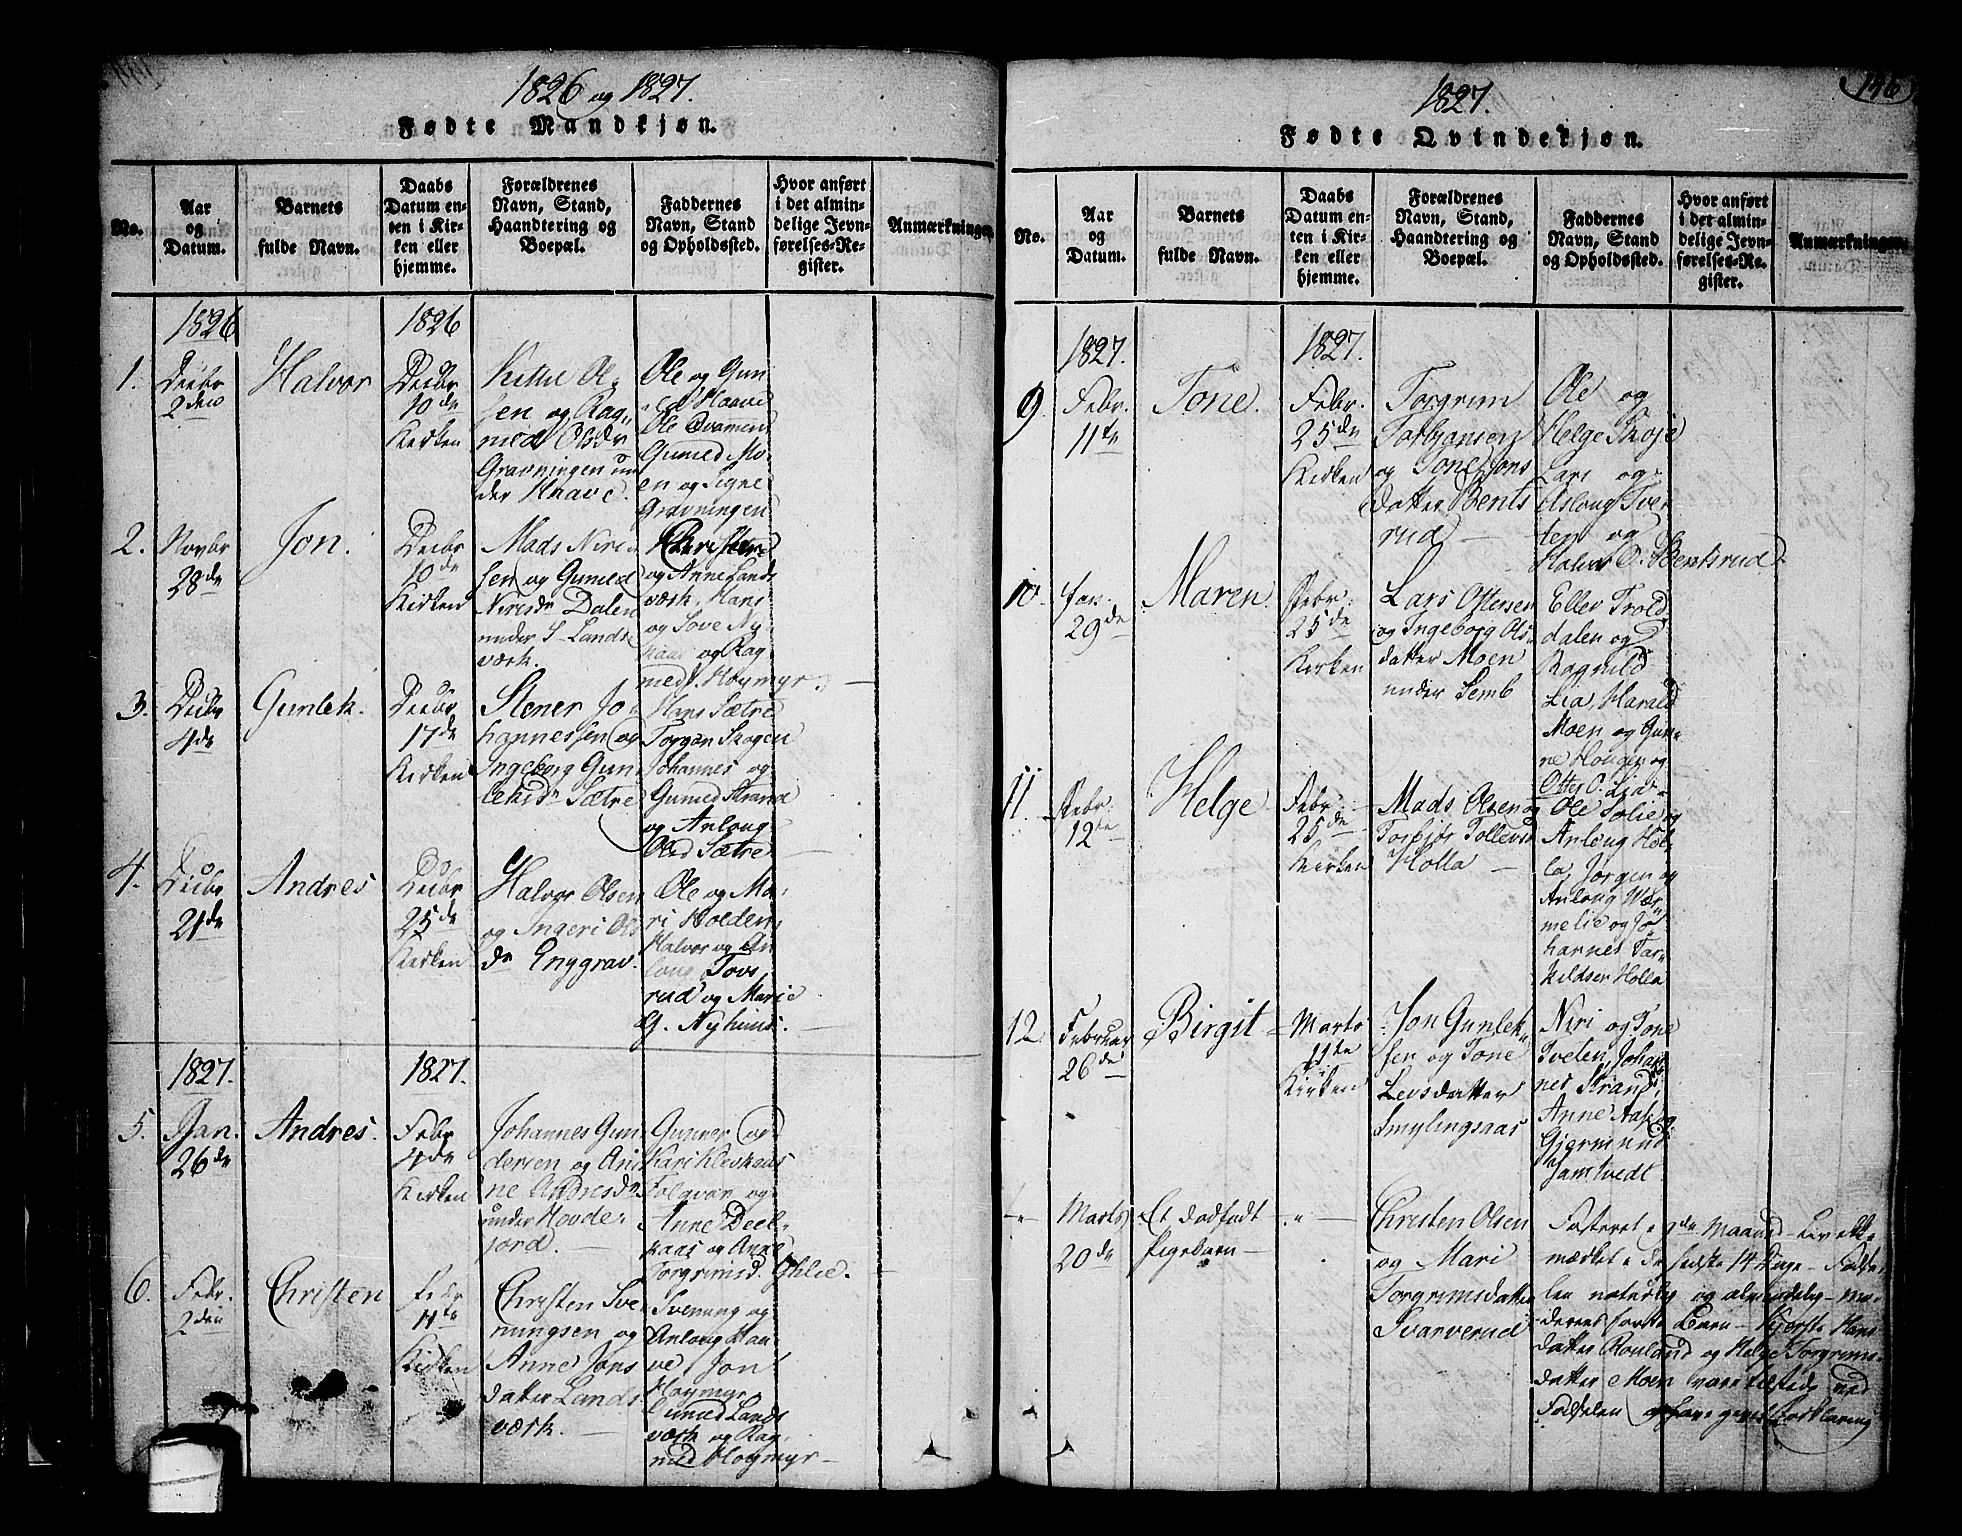 1826 og 1827.
Fødte Mandkjøn.
No.
Aar
og
Datum.
Barnets
fulde Navn.
Daabs
Datum en-
ten i Kir-
ken eller
hjemme.
Forældrenes
Navn, Stand,
Haandtering og
Boepæl.
Faddernes
Navn, Stand
og Opholdssted.
Hvor anført
i det almin-
delige Jevn-
førelses-Re-
gister.
Anmærkninger.
1826
1826
1.
Decbr
2den
Halvor
Decbr
10de
Kirken
Kittil Ol-
sen og Rag-
nild Olsdr
Gravningen un
der Haave.
Ole og Gun
Haave
Ole Qvamen
Guned Mo-
en og Signe
Gravningen
2.
Novbr
28de
Jon.
Decbr
10de
Kirken
Mads Niri
sen og Guned
Nirisdr Dalen
under S. Lands
værk.
Christen
og Anne Lands
værk, Hans
og Tove Ny-
kaas og Rag
ned. Høymyr.
3.
Decbr
4de
Gunlek.
Decbr
17de
Kirken
Stener Jo
hannessen og
Ingeborg Gun
leksdr Sætre
Hans Sætre
Torgon Skogen
Johannes og
Guned Strand
og Anlong
Sætre
4.
Decbr
21de
Andres
Decbr
25de
Kirken
Halvor Olsen
og Ingeri Ols
dr Enggrav.
Ole og Ma-
ri Holden,
Halvor og An
long Tovs
rud og Marie
G. Nyhuus.
1827.
1827.
5.
Jan.
26de
Andres.
Febr
4de
Kirken
Johannes Gun
dersen og An
ne Andresdr
under Hovde
jord.
Gunner og
Kari Klevkaas
Folqvar og
Anne Deel-
kaas og Anne
Torgrimsd. Ghlie.
6.
Febr.
2den
Christen
Febr
11te
Kirken
Christen Sve
nungsen og
Anne Jons
datter Lands
værk.
Svenung og
Anlong Haa
ve, Jon
Høymyr
Guned Lands
værk og Rag
nild Høymyr
146
1827.
Fødte Qvindekjøn.
No.
Aar
og
Datum.
Barnets
fulde Navn.
Daabs
Datum en-
ten i Kir-
ken eller
hjemme.
Forældrenes
Navn, Stand,
Haandtering og
Boepæl.
Faddernes
Navn, Stand
og Opholdssted.
Hvor anført
i det almin-
delige Jevn-
førelses-Re-
gister.
Anmærkninger.
1827.
1827.
9.
Febr.
11te
Tone.
Febr.
25de
Kirken
Torgrim
Torbjønsen
og Tone Jons
datter Bents
rud
Ole og
Helge Skoje
Lars og
Aslong Tve-
ten og
Halvor O. Bentsrud.
10.
Jan.
29de
Maren.
Febr.
25de
Kirken
Lars Ottersen
og Ingeborg Ols
datter Moen
under Semb
Ellev Trold
dalen og
Ragnild
Lia, Harald
Moen og Gun-
ne Hougen og
Otter O. Lia
11.
Febr.
12te
Helge
Febr.
25de
Kirken
Mads Olsen og
Torbjør Tollevsd
Holla
Ole Solie og
Anlong Hol-
la, Jørgen og
Anlong Vær
melie og Jo-
hannes Tar-
kildsen Holla
12.
Februar
26de
Birgit
Marts
11te
Kirken
Jon Gunlek
sen og Tone
Levsdatter
Smylingsaas
Niri og Tone
Tveten, Johan
nes Strand,
Anne Aase og
Gjermund
Jamtvedt
Marts
20de
Et dødfødt
Pigebarn
Christen Olsen
og Mari
Torgrimsdatter
Svarverud
Fosteret 9de Maaned – Liv ikke
mærket de sidste 14 Dage – Føds-
len naturlig og almindelig – mo-
derens første Barn – Kjersti Hans
datter Rouland og Helge Torgrims-
datter Moen vare tilstede ved
Fødselen og have givet Forklaring